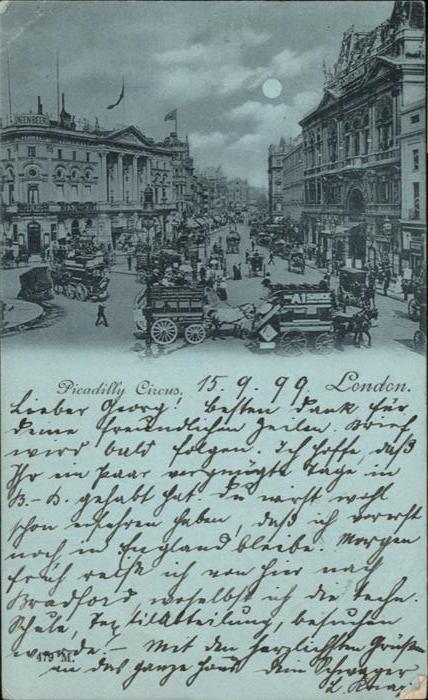 Picadilly Circus. 15.9.99. London.
Lieber Georg! Besten Dank für
deine freundlichen Zeilen. Brief
wird bald folgen. Ich hoffe, daß
Ihr ein paar vergnügte Tage in
B.-B. gehabt hat. Du wirst wohl
schon erfahren haben, daß ich vorerst
noch in England bleibe. Morgen
früh reise ich von hier nach
Bradford woselbst ich die techn.
Schule, Textilabteilung, besuchen
werde. – Mit den herzlichsten Grüßen
an das ganze Haus Dein Schwager
479 M.